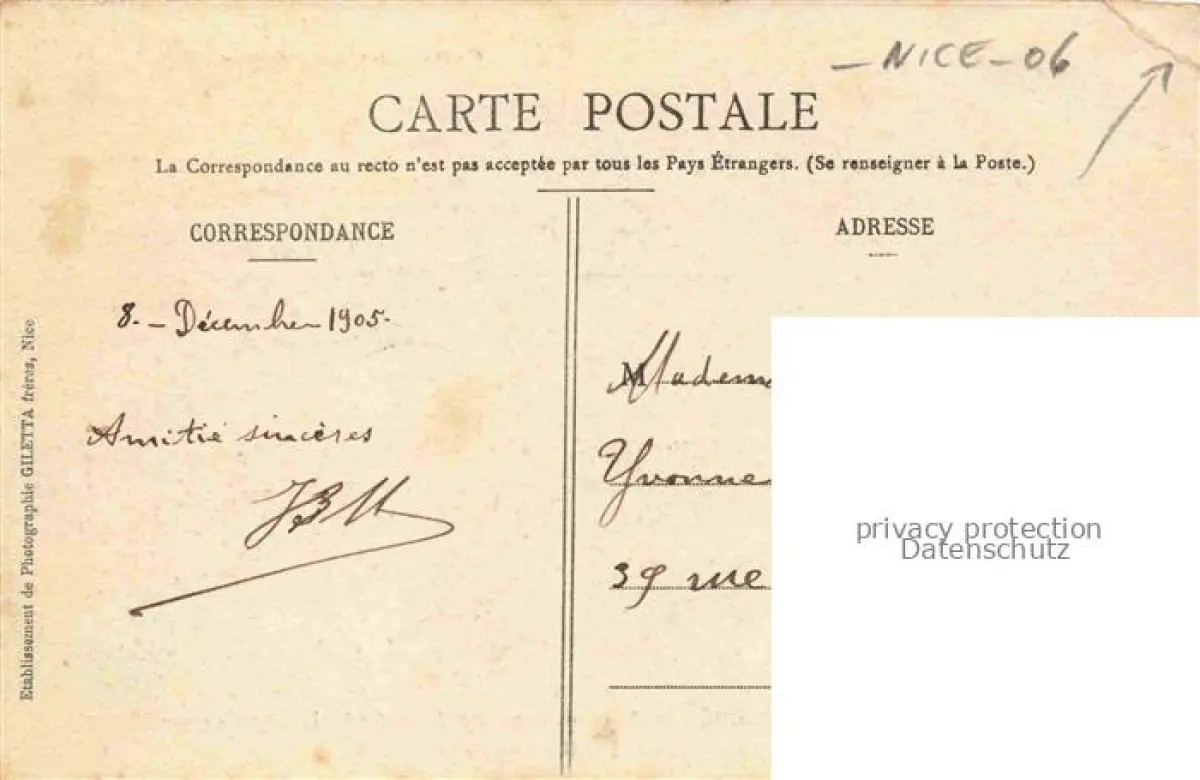 - NICE - 06
CARTE POSTALE
La Correspondance au recto n'est pas acceptée par tous les Pays Étrangers. (Se renseigner à la Poste.)
CORRESPONDANCE
8. - Décembre 1905.
Amitié sincères
ADRESSE
M
Madem
Yvonne
rue
privacy protection
Datenschutz
Etablissement de Photographie GILETTA frères, Nice